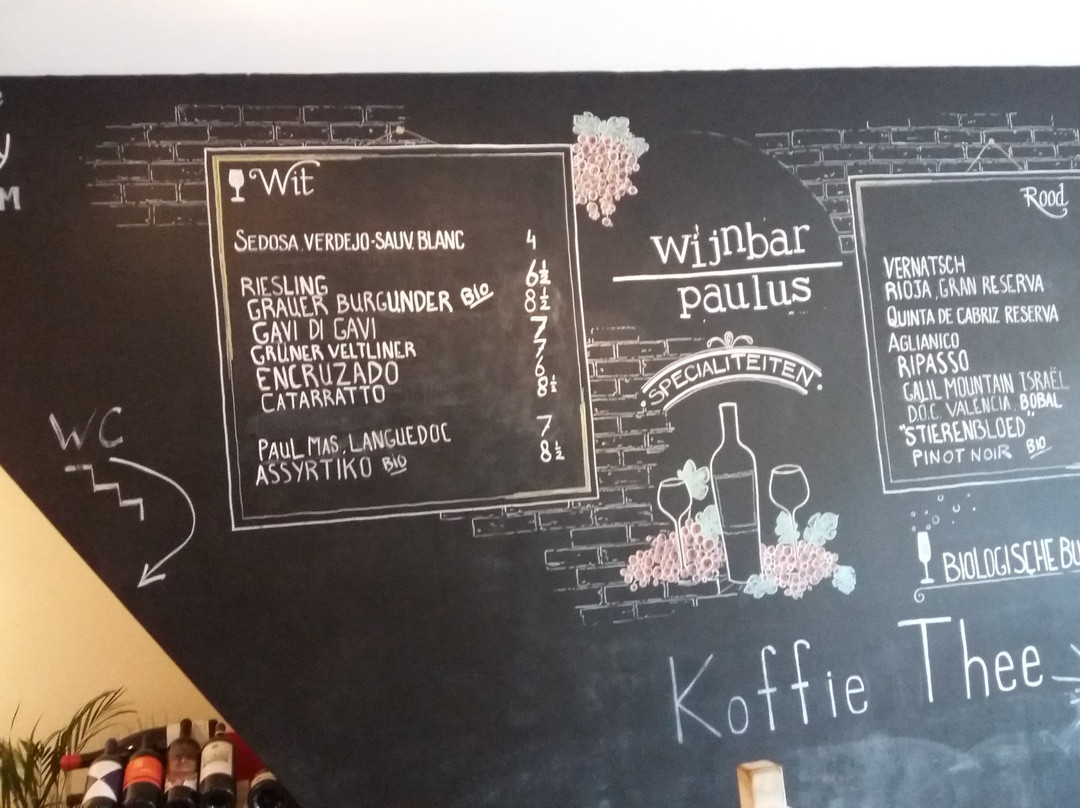 y
M
Wit
SEDOSA, VERDEJO-SAUV. BLANC 4
RIESLING 6½
GRAUER BURGUNDER BIO 8½
GAVI DI GAVI 7
GRÜNER VELTLINER 7
ENCRUZADO 6
CATARRATTO 8½
PAUL MAS, LANGUEDOC 7
ASSYRTIKO BIO 8½
WC
wijnbar
paulus
SPECIALITEITEN
Rood
VERNATSCH
RIOJA, GRAN RESERVA
QUINTA DE CABRIZ RESERVA
AGLIANICO
RIPASSO
GALIL MOUNTAIN ISRAËL
D.O.C. VALENCIA, BOBAL
"STIERENBLOED"
PINOT NOIR BIO
BIOLOGISCHE BU
Koffie Thee